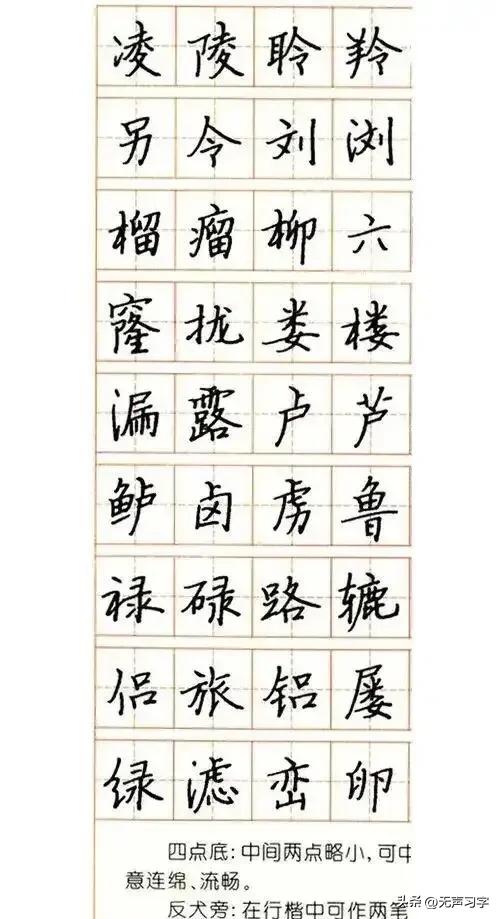 凌陵聆羚
另令刘浏
榴瘤柳六
窿拢娄楼
漏露卢芦
鲈卤虏鲁
禄碌路辘
侣旅铝屡
绿滤峦卵
四点底:中间两点略小,可中
意连绵、流畅。
反犬旁:在行楷中可作两笔
头条@无声习字